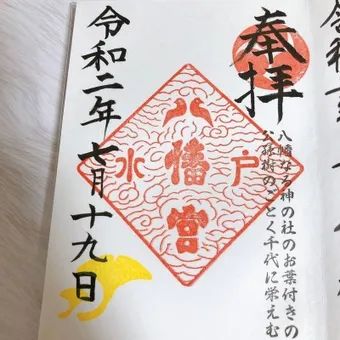 奉拝
八幡なる神の社のお葉付きの
公孫樹のごとく千代に栄えむ
八幡宮
水戸
令和二年七月十九日